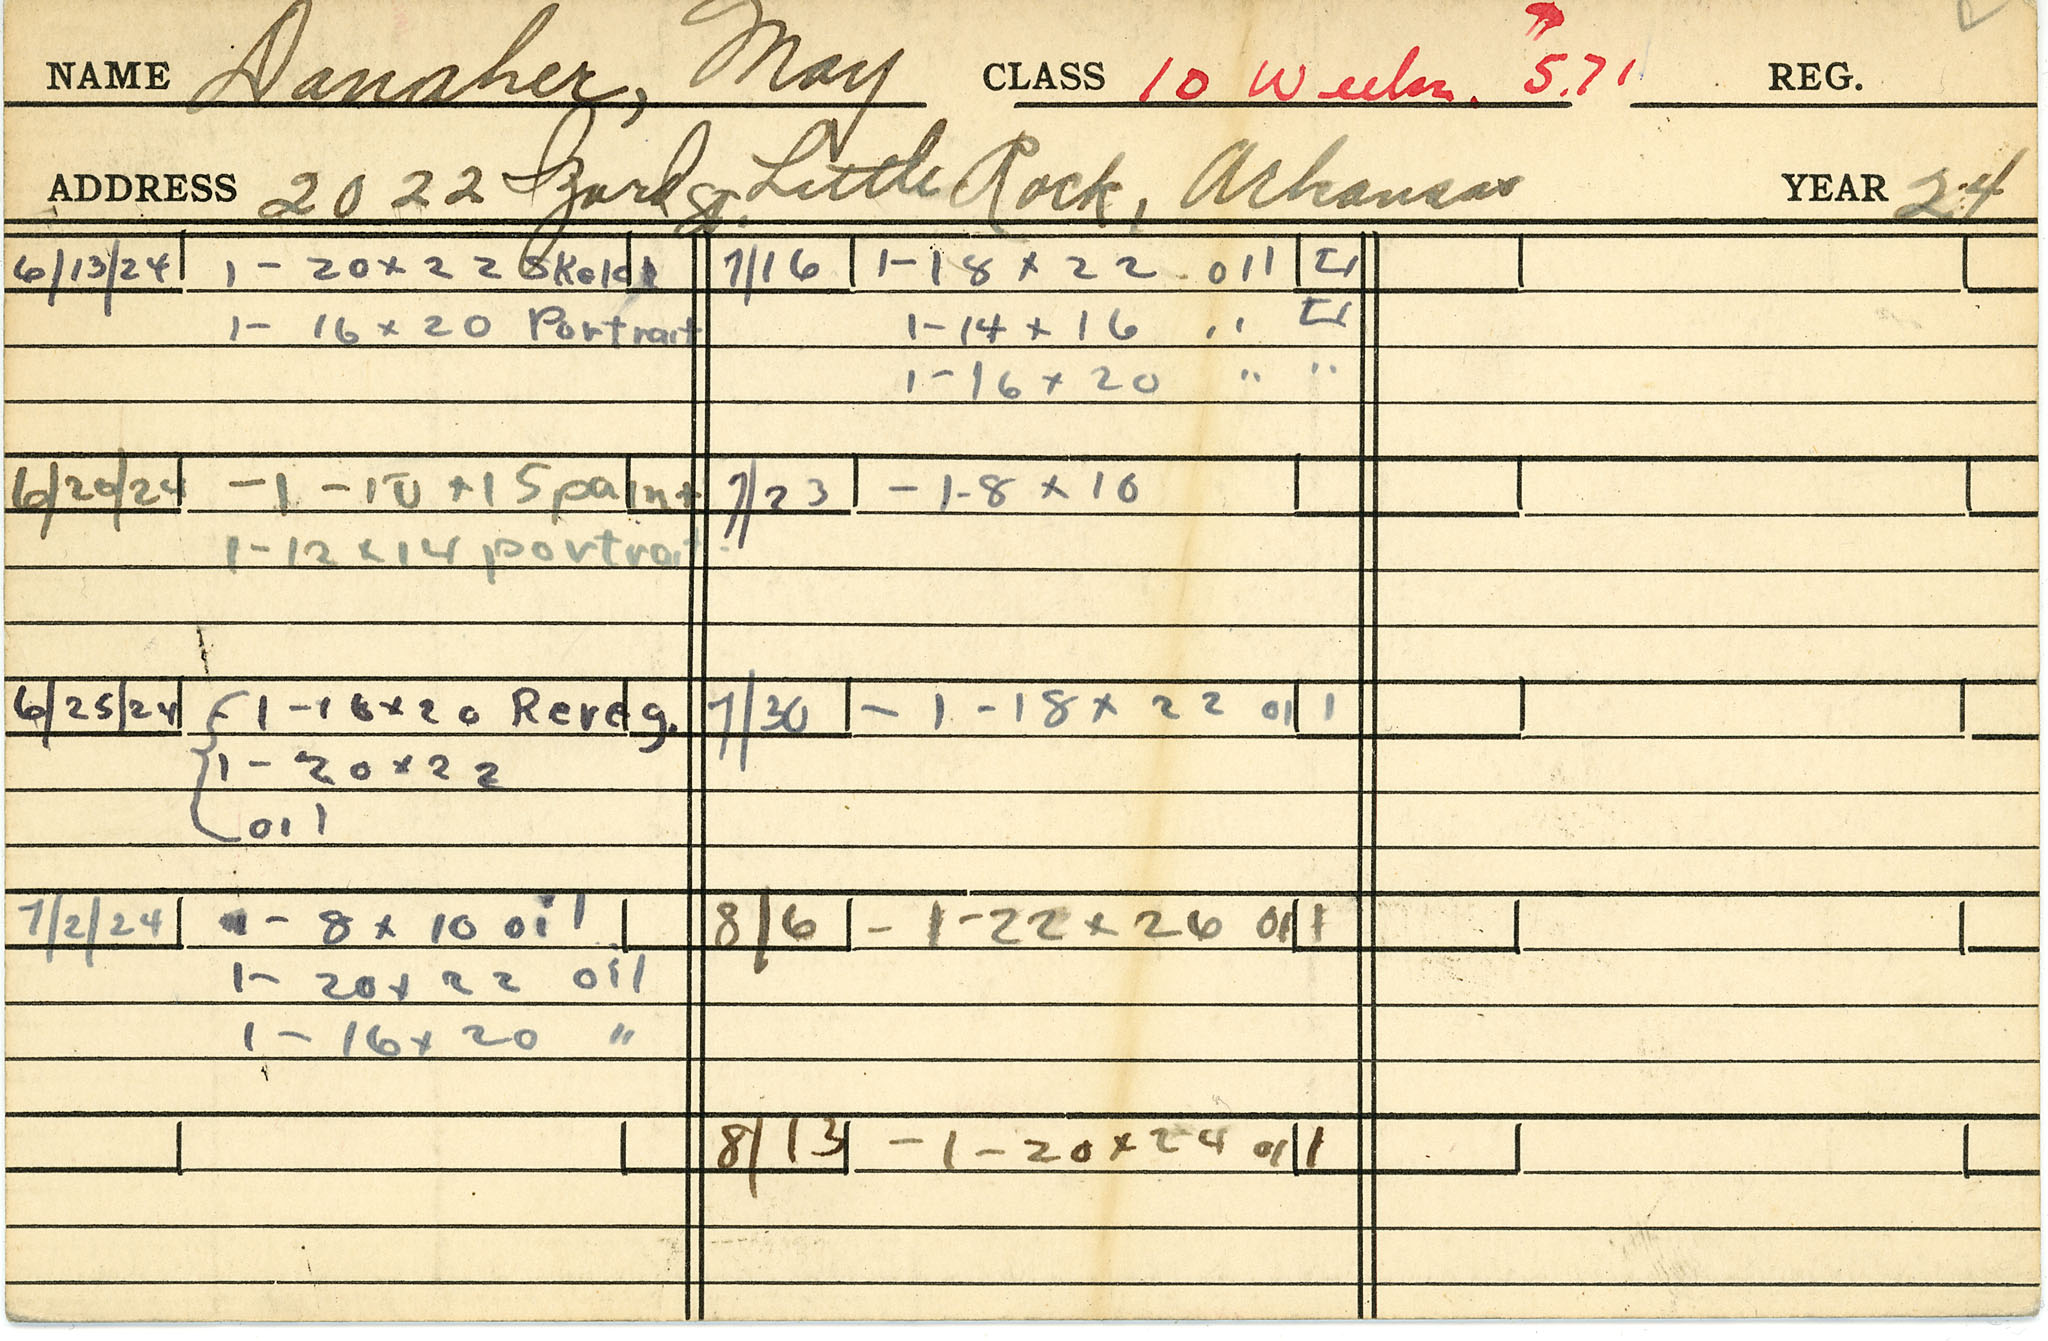 NAME Danaher, May CLASS 10 Weeks. 5.71 REG.
ADDRESS 2022 Izard St. Little Rock, Arkansas YEAR 24
6/13/24 1 - 20 x 22 Sketch
1 - 16 x 20 Portrait
6/20/24 - 1 - 10 x 15 paint
1 - 12 x 14 portrait
6/25/24 1 - 16 x 20 Rereg.
1 - 20 x 22
oil
7/2/24 1 - 8 x 10 oil
1 - 20 x 22 oil
1 - 16 x 20 "
7/16 1 - 18 x 22 oil
1 - 14 x 16 "
1 - 16 x 20 " "
7/23 - 1 - 8 x 10
7/30 - 1 - 18 x 22 oil
8/6 - 1 - 22 x 26 oil
8/13 - 1 - 20 x 24 oil